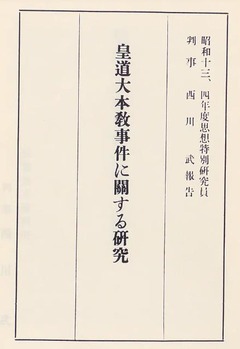 昭和十三、四年度思想特別研究員
判事 西川武報告
皇道大本教事件に關する研究